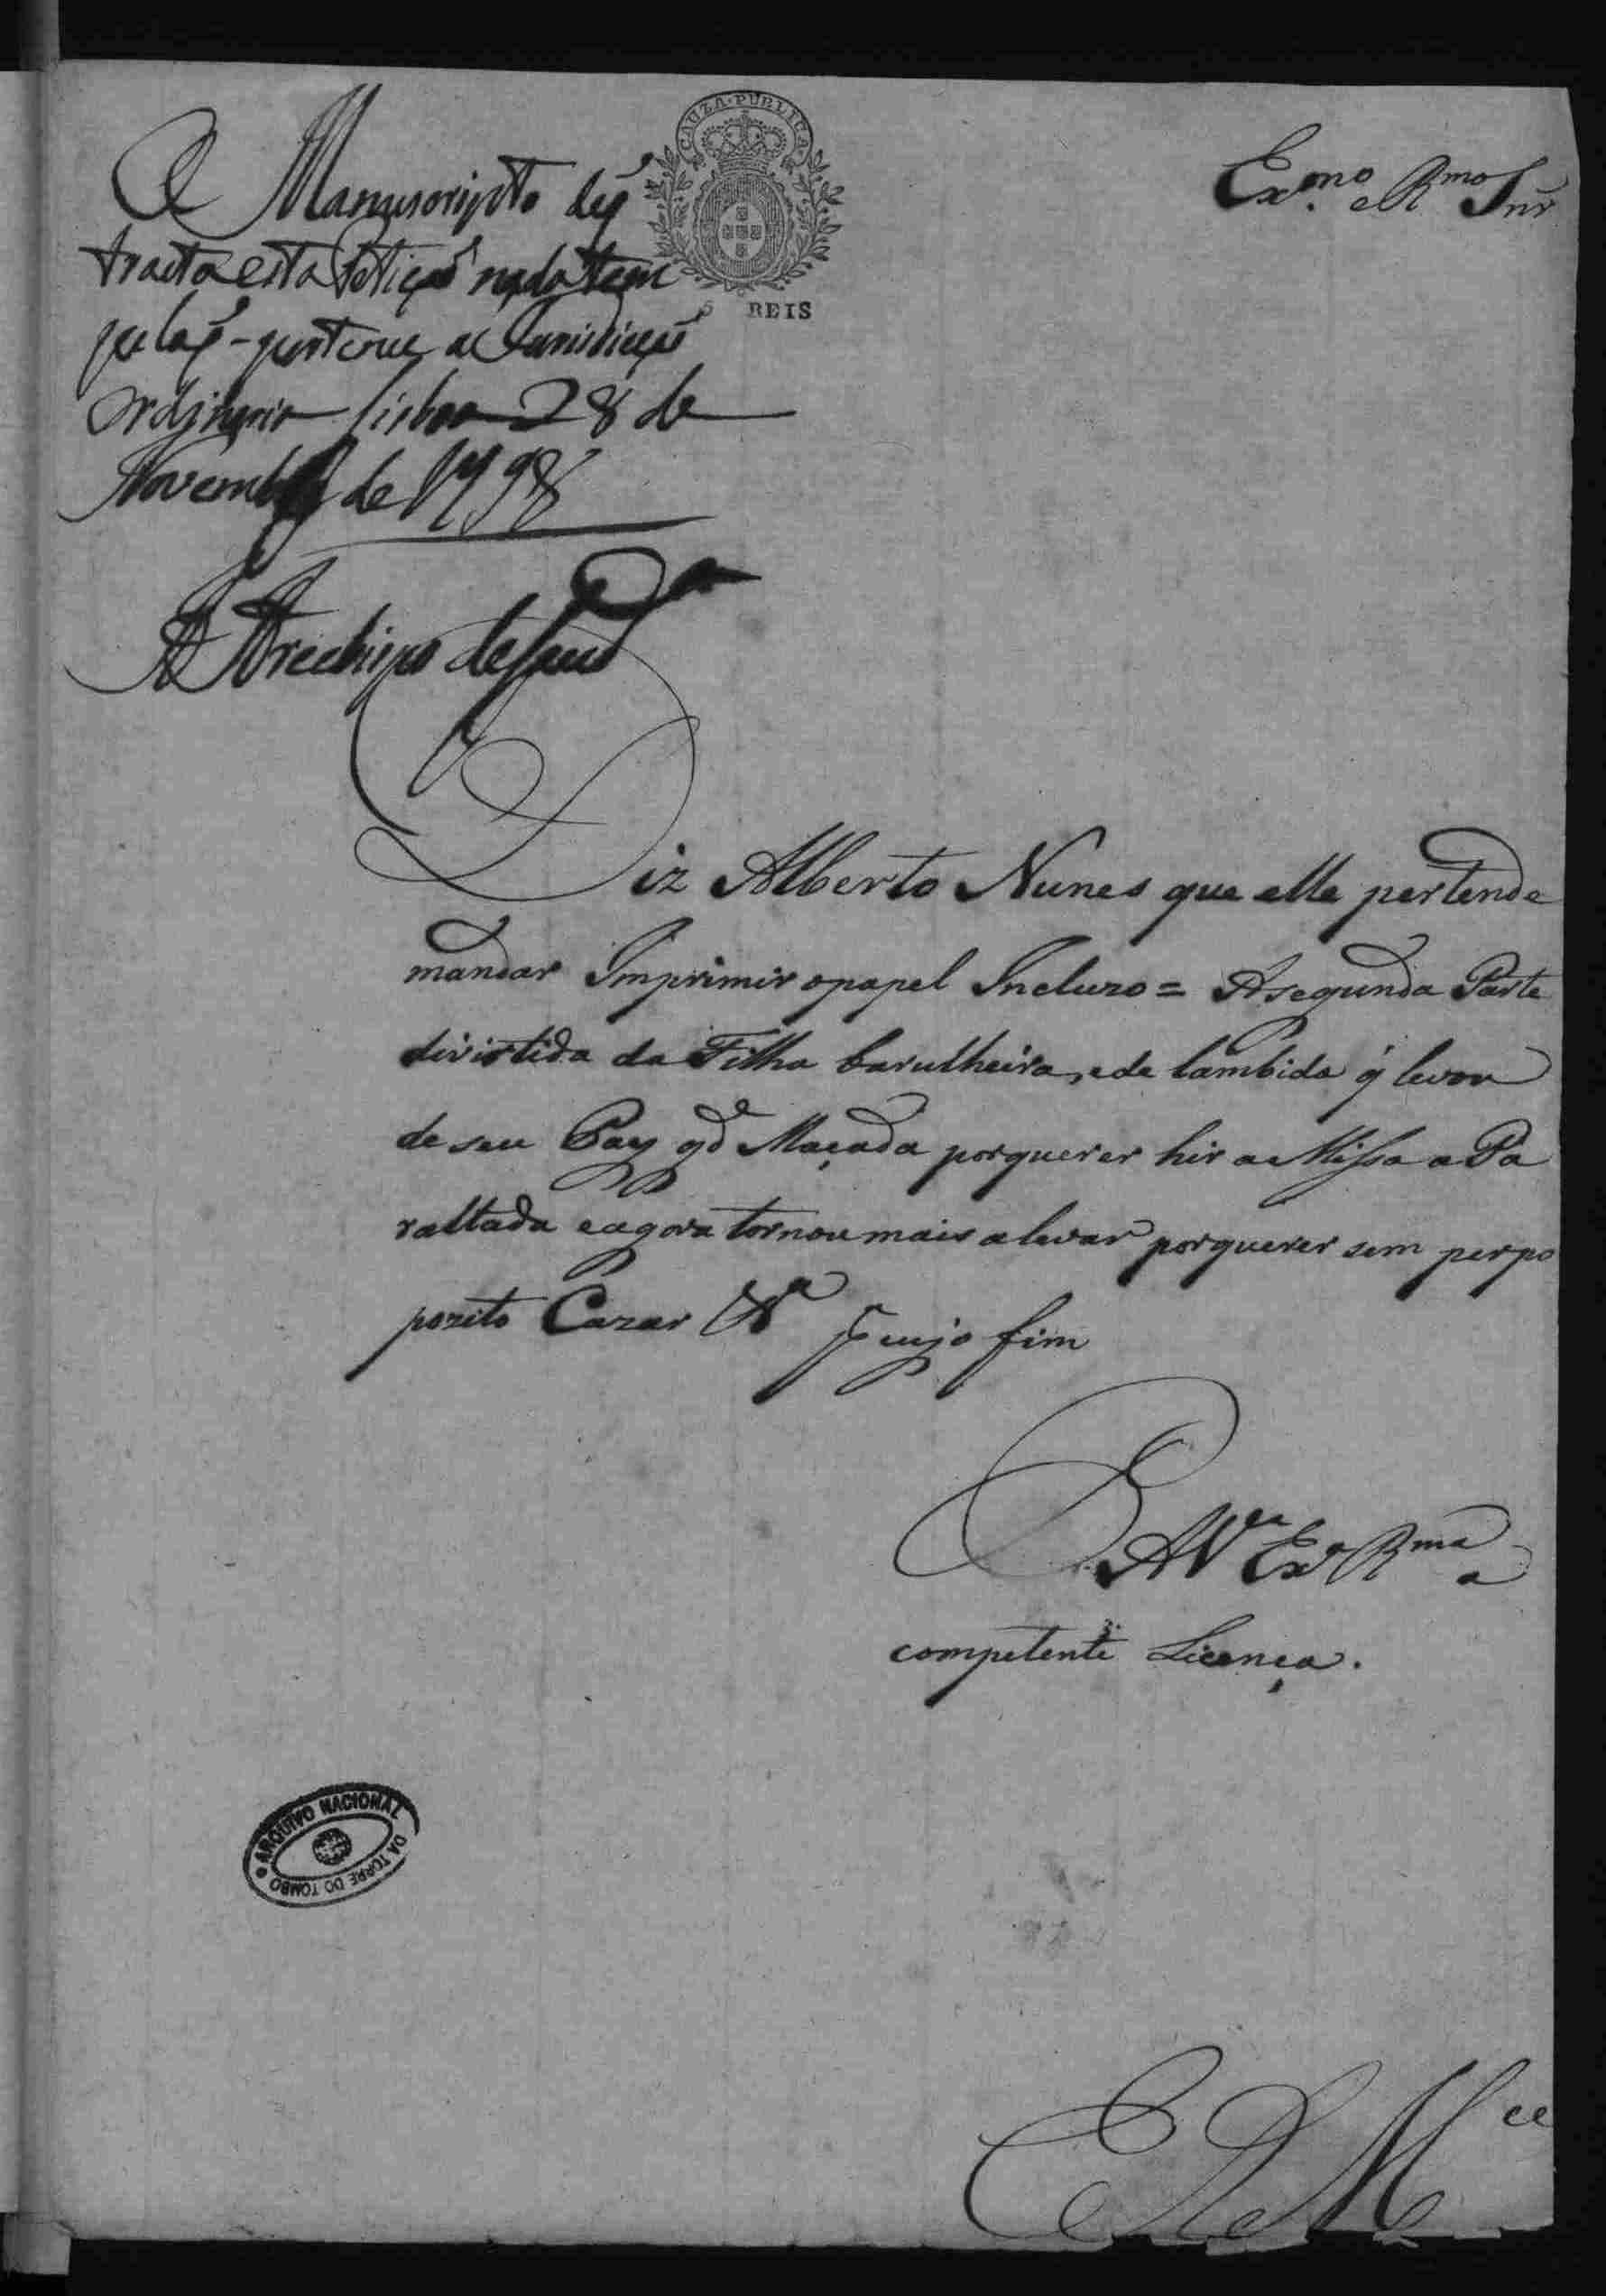 CAUZA PUBLICA
REIS
Exmo. e Rmo Snr
O Manuscripto de q̃
tracta esta Petiçaõ nada tem
pertence a Jurisdicçaõ
Ordinaria Lisboa 28 de
Novembro de 1798
Diz Alberto Nunes que elle pertende
mandar Imprimir o papel Incluzo = A segunda Parte
divirtida da Filha barulheira, e de lambida q̃ levou
de seu Pay gde Maçada por querer hir a Missa a Pa
raltada e agora tornou mais a levar por querer sem perpo
pozito Cazar &a
cujo fim
P. A Va Exa Rma a
competente Licença.
ARQUIVO NACIONAL DA TORRE DO TOMBO
E R Mce